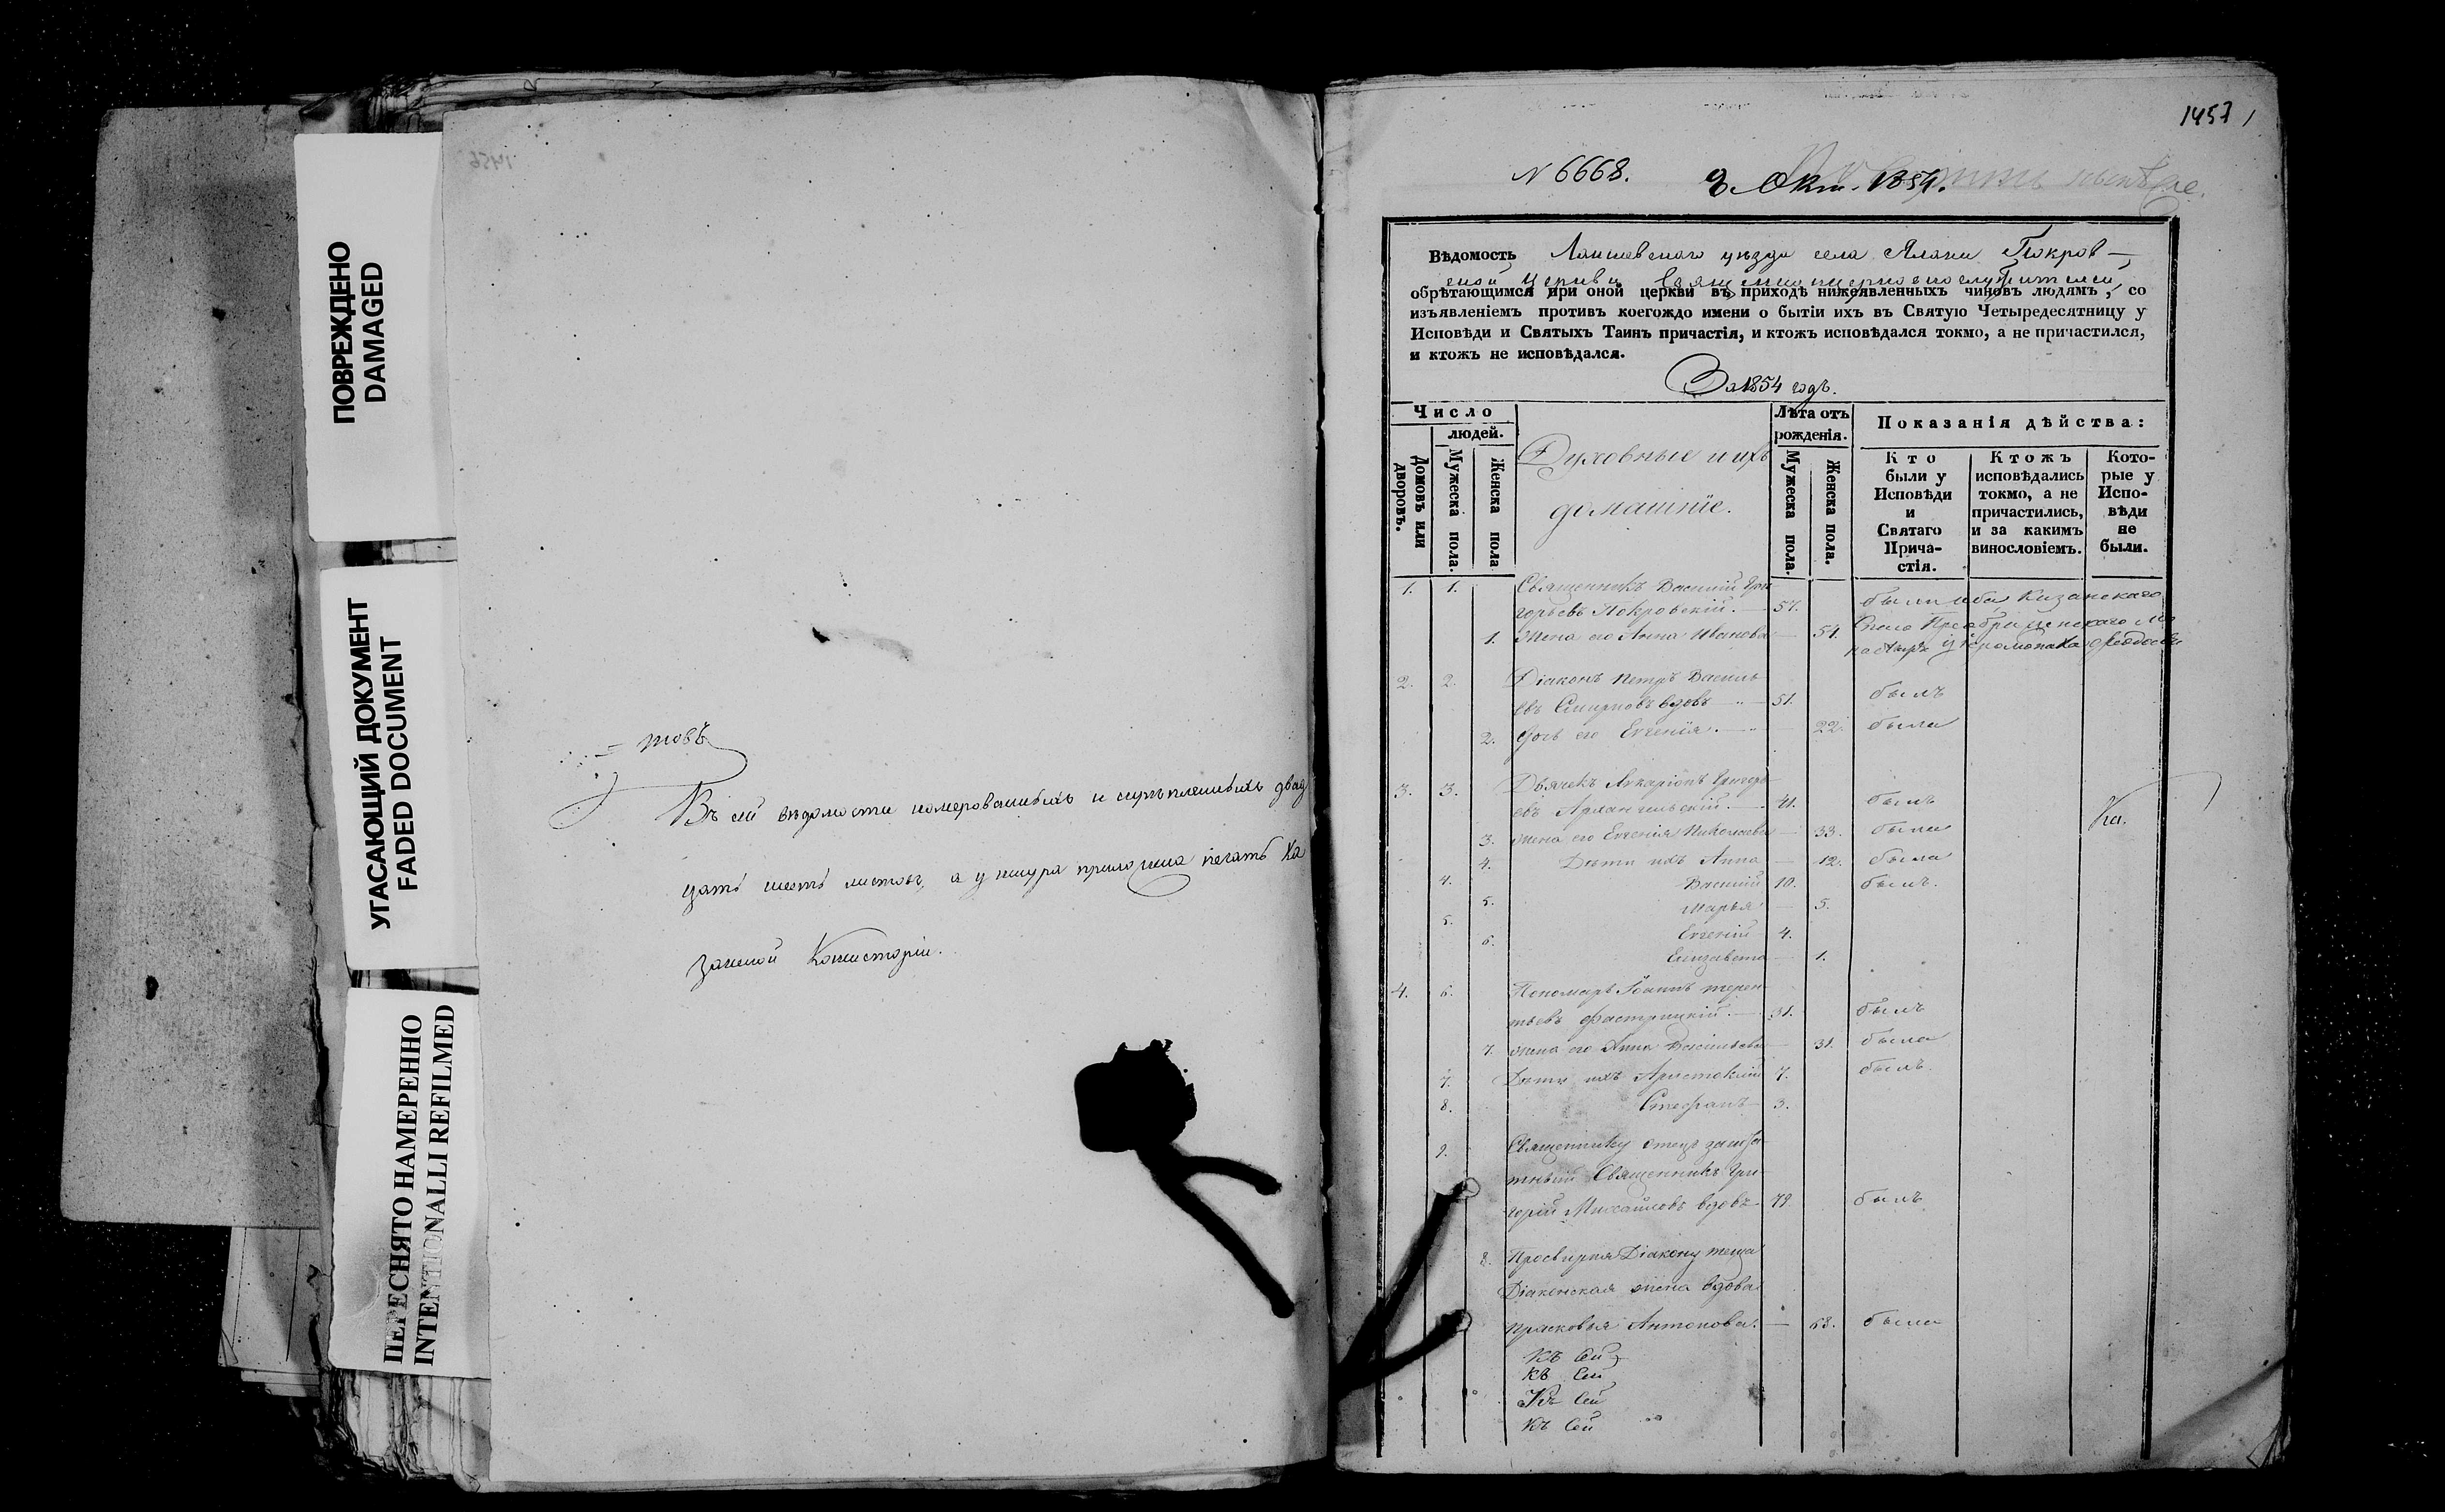 ПОВРЕЖДЕНО
DAMAGED
УГАСАЮЩИЙ ДОКУМЕНТ
FADED DOCUMENT
ПЕРЕСНЯТО НАМЕРЕННО
INTENTIONALLI REFILMED
1456
товъ
Въ сей вѣдомости номерованныхъ и скрѣпленныхъ двад
цать шесть листовъ, а у шнура приложена печать Ка
занской Консисторіи.
1457
N 6668. Окт. 1854.
Вѣдомость Лаишевскаго уѣзда села Покров-
ской Церкви Священноцерковнослужителей,
обрѣтающимся при оной церкви въ приходѣ нижеявленныхъ чиновъ людямъ, со
изъявленіемъ противъ коегождо имени о бытіи ихъ въ Святую Четыредесятницу у
Исповѣди и Святыхъ Таинъ причастія, и ктожъ исповѣдался токмо, а не причастился,
и ктожъ не исповѣдался.
За 1854 годъ.
Число
людей.
Домовъ или дворовъ.
Мужеска пола.
Женска пола
Духовные и ихъ
домашніе.
Лѣта отъ
рожденія.
Мужеска пола.
Женска пола.
Показанія дѣйства:
Кто были у Исповѣди и Святаго Прича-стія.
Ктожъ исповѣдались токмо, а не причастились, и за какимъ винословіемъ.
Кото-рые у Испо-вѣди не были.
1. 1. Священникъ Василій Гри
горьевъ Покровскій. 57. были оба Казанскаго
1. Жена его Анна Иванова 54. Спасо Преображенскаго Мо
настыря у іеромонаха
2. 2. Діаконъ Петръ Василь
евъ Смирновъ вдовъ 51. былъ
2. Дочь его Евгенія. 22. была
3. 3. Дьячекъ Григорь
евъ Архангельскій. 41. былъ
Ка.
3. Жена его Евгенія Николаева 33. была
4. Дѣти ихъ Анна 12. была
4. Василій 10. былъ.
5. Марья 5.
5. Евгеній 4.
6. Елизавета 1.
4. 6. Пономарь Іоаннъ Терен
тьевъ 31. былъ
7. Жена его Анна Васильева 31. была
7. Дѣти ихъ Аристоклій 7. былъ.
8. Стефанъ 3.
9. Священнику отецъ зашта
тный Священникъ Гри
горій Михайловъ вдовъ 79. былъ
8. Просвирня Діакону теща
Діаконская жена вдова
Прасковья Антонова. 68. была
Къ Сей
Къ Сей
Къ Сей
Къ Сей